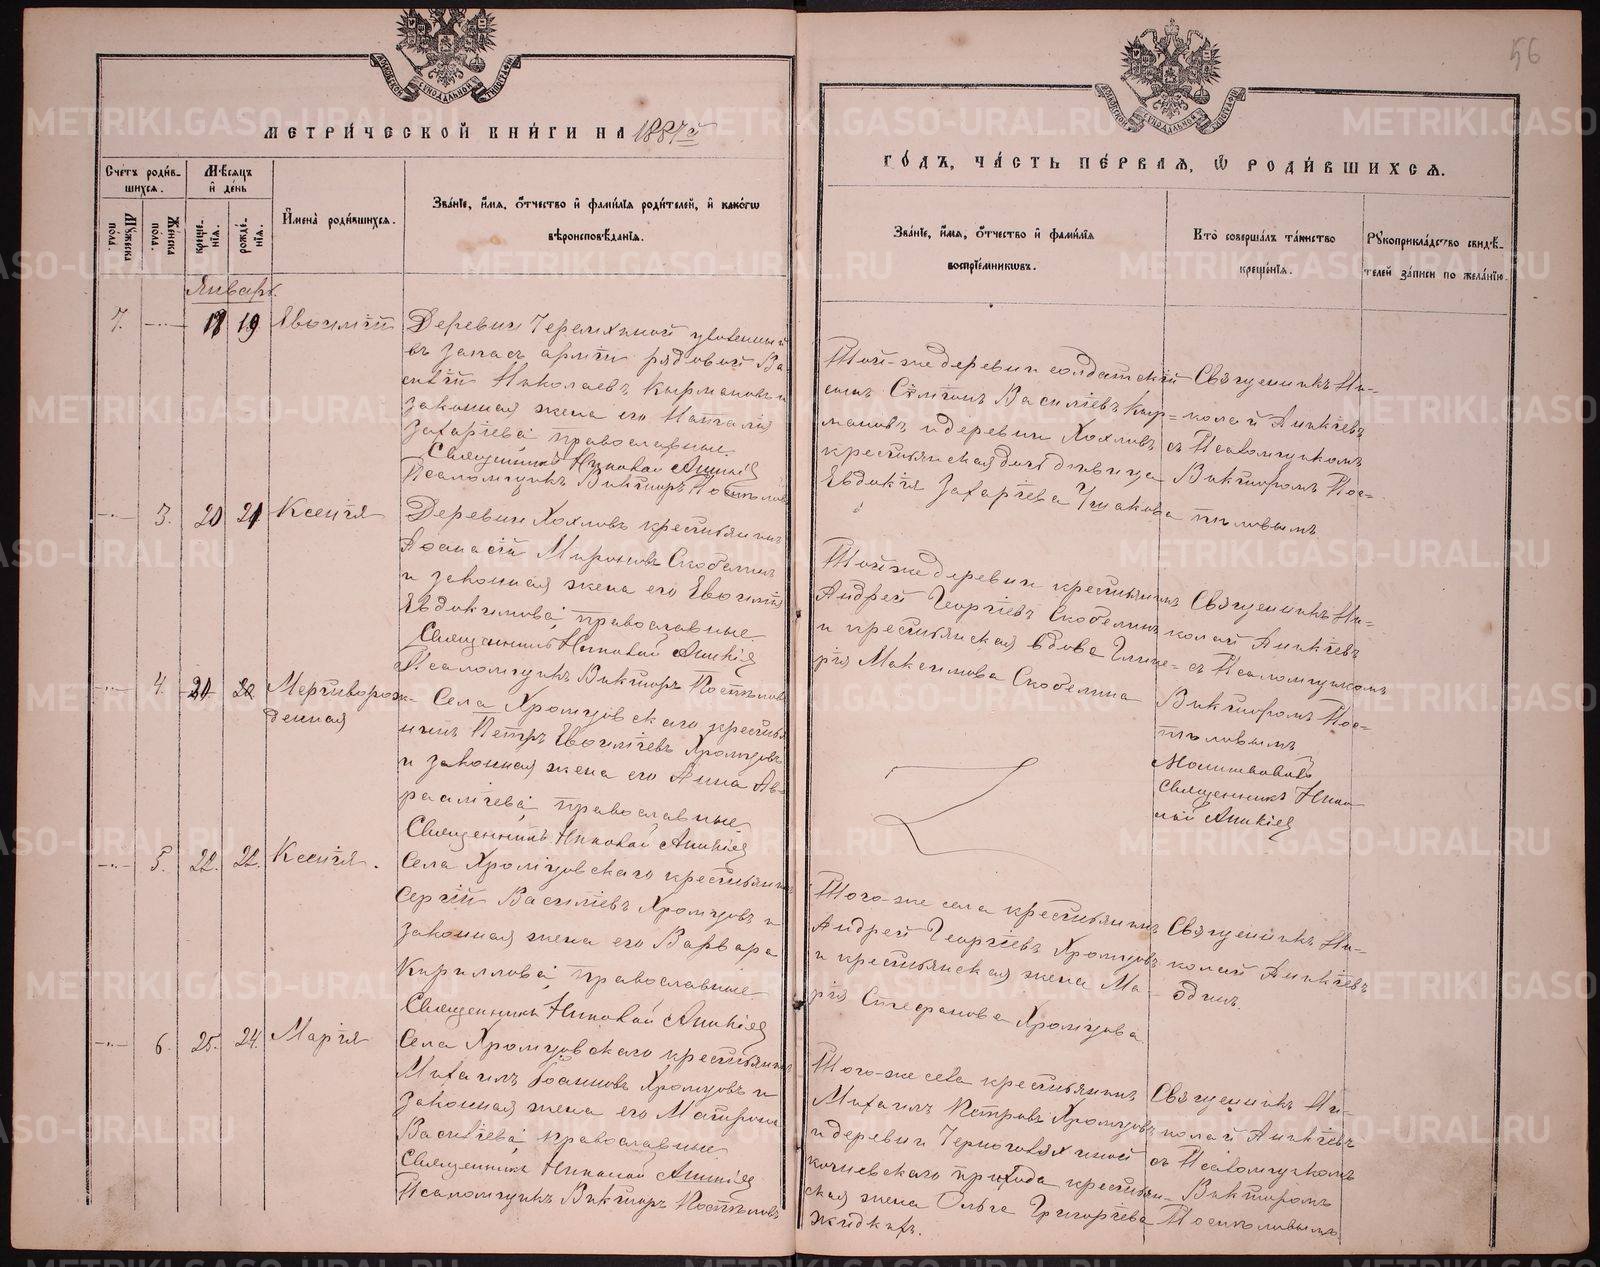 56
МОСКОВСКОЙ СѴНОДАЛЬНОЙ ТИПОГРАФІИ
МОСКОВСКОЙ СѴНОДАЛЬНОЙ ТИПОГРАФІИ
МЕТРИ́ЧЕСКОЙ КНИ́ГИ НА 1887й
ГО́ДЪ, ЧА́СТЬ ПЕ́РВАЯ, Ѡ РОДИ́ВШИХСЯ.
Сче́тъ роди́в-
шихся.
Мѣсяцъ
и҆ де́нь
И҆мена̀ роди́вшихся.
Зва́ніе, и҆́мя, ѻ҆́тчество и҆ фами́лія роди́телей, и҆ како́гѡ
вѣроисповѣ́данія.
Мужеска пола.
Женска пола.
креще-
нія.
рожде-
нія.
Зва́ніе, и҆́мя, ѻ҆́тчество и҆ фами́лія
воспріе́мниковъ.
Кто̀ соверша́лъ та́инство
креще́нія.
Рукоприкла́дство свидѣ́-
телей за́писи по жела́нію.
Январь.
7. 18 19 Евѳимій
Деревни Черемхиной уволенный
въ запасъ арміи рядовой Ва-
силій Николаевъ Кырмановъ и
законная жена его Наталія
Захаріева, православные.
Священникъ Николай Аникіев
Псаломщикъ Викторъ Постыловъ
Той-же деревни солдатскій
сынъ Симеонъ Василіевъ Кыр-
мановъ и деревни Хохловъ
крестьянская дочь девица
Евдокія Захаріева Ушакова
Священникъ Ни-
колай Аникіевъ
съ Псаломщикомъ
Викторомъ Пос-
тыловымъ
3. 20 21 Ксенія
Деревни Хохловъ крестьянинъ
Аѳанасій Мироновъ Скобелинъ
и законная жена его Евѳимія
Евдокимова, православные.
Священникъ Николай Аникіев
Псаломщикъ Викторъ Постыловъ
Той же деревни крестьянинъ
Андрей Георгіевъ Скобелинъ
и крестьянская вдова Глике-
рія Максимова Скобелина
Священникъ Ни-
колай Аникіевъ
съ Псаломщикомъ
Викторомъ Пос-
тыловымъ
4. 21 22 Мертворож-
денная
Села Хромцовскаго крестья-
нинъ Петръ Евѳиміевъ Хромцовъ
и законная жена его Анна Ав-
рааміева, православные
Священникъ Николай Аникіев
Молитвовалъ
Священникъ Нико-
лай Аникіев
5. 22. 22. Ксенія.
Села Хромцовскаго крестьянинъ
Сергій Василіевъ Хромцовъ и
законная жена его Варвара
Кириллова, православные
Священникъ Николай Аникіев
Того-же села крестьянинъ
Андрей Георгіевъ Хромцовъ
и крестьянская жена Ма-
рія Стефанова Хромцова
Священникъ Ни-
колай Аникіевъ
одинъ.
6. 25. 24. Марія
Села Хромцовскаго крестьянинъ
Михаилъ Іоанновъ Хромцовъ и
законная жена его Матрона
Василіева, православные.
Священникъ Николай Аникіев
Псаломщикъ Викторъ Постыловъ
Того-же села крестьянинъ
Михаилъ Петровъ Хромцовъ
и деревни
кочневскаго прихода крестьян-
ская жена Ольга Григоріева
Жидкихъ.
Священникъ Ни-
колай Аникіевъ
съ Псаломщикомъ
Викторомъ
Постыловымъ
METRIKI.GASO-URAL.RU